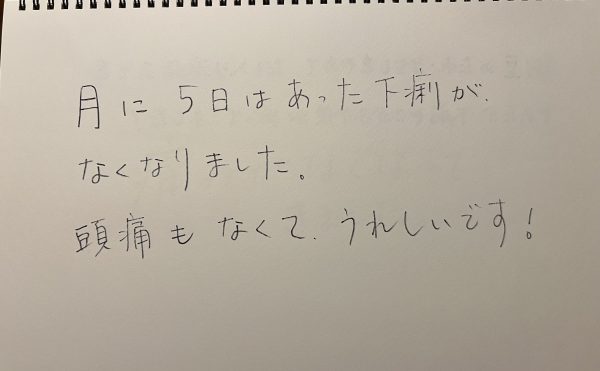 月に5日はあった下痢が、
なくなりました。
頭痛もなくて、うれしいです!